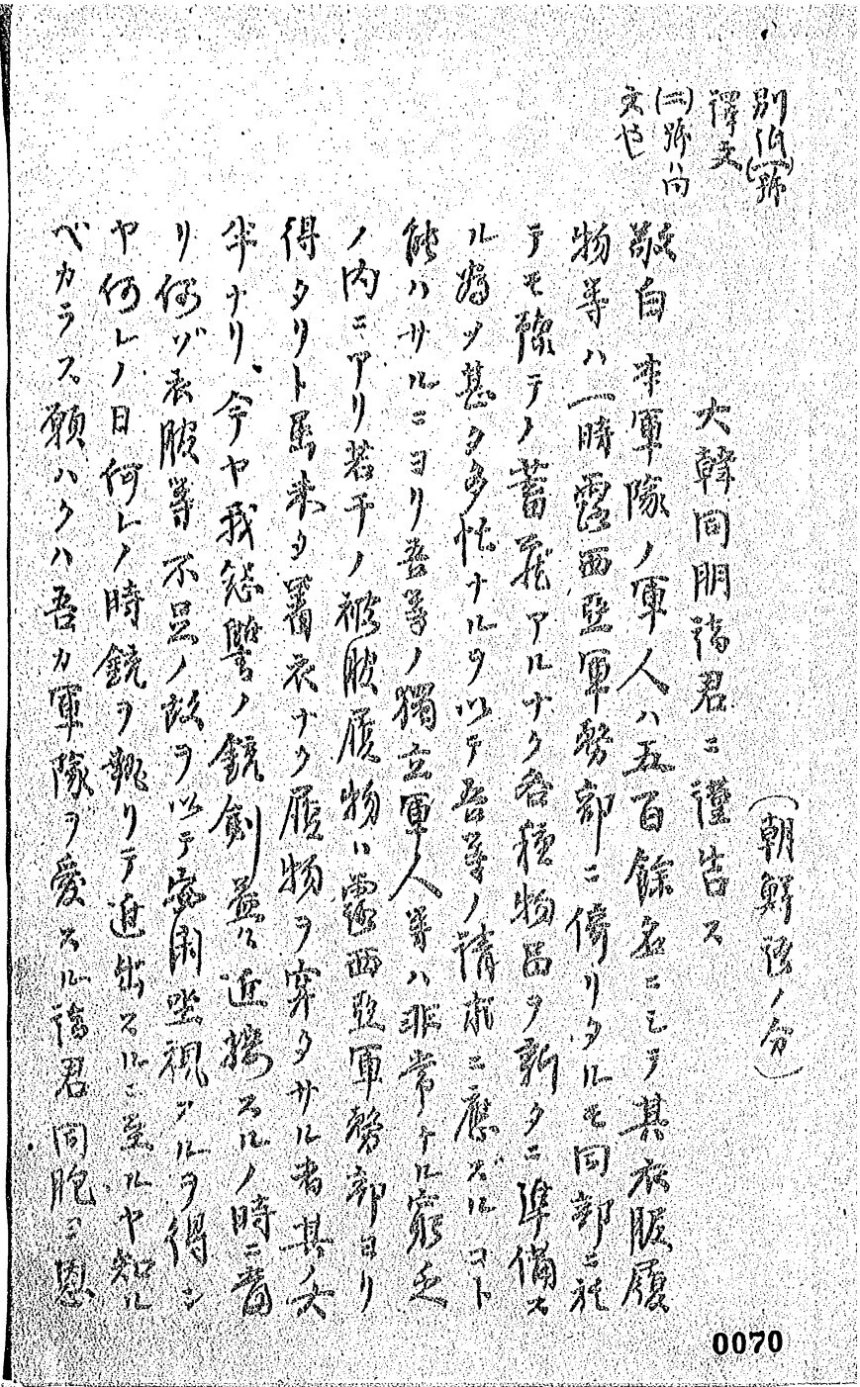 別紙(一)號
譯文
(二)號ハ同
文也
(朝鮮語ノ分)
大韓同朋諸君ニ謹告ス
敬白 本軍隊ノ軍人ハ五百餘名ニシテ其衣服履
物等ハ一時露西亞軍務部ニ倚リタルモ同部ニ於
テモ豫テノ蓄藏アルナク各種物品ヲ新タニ準備ス
ル為メ甚タ多忙ナルヲ以テ吾等ノ請求ニ應ズルコト
能ハサルニヨリ吾等ノ獨立軍人等ハ非常ナル窮乏
ノ内ニアリ若干ノ被服履物ハ露西亞軍務部ヨリ
得タリト雖未タ着衣ナク履物ヲ穿タサル者其ノ大
半ナリ、今ヤ我怨讐ノ銃劍益々近接スルノ時ニ當
リ何ゾ衣服等不足ノ故ヲ以テ安閑坐視スルヲ得ン
ヤ何レノ日何レノ時銃ヲ執リテ進出スルニ至ルヤ知ル
ベカラス。願ハクハ吾カ軍隊ヲ愛スル諸君同胞ヨ恩
0070